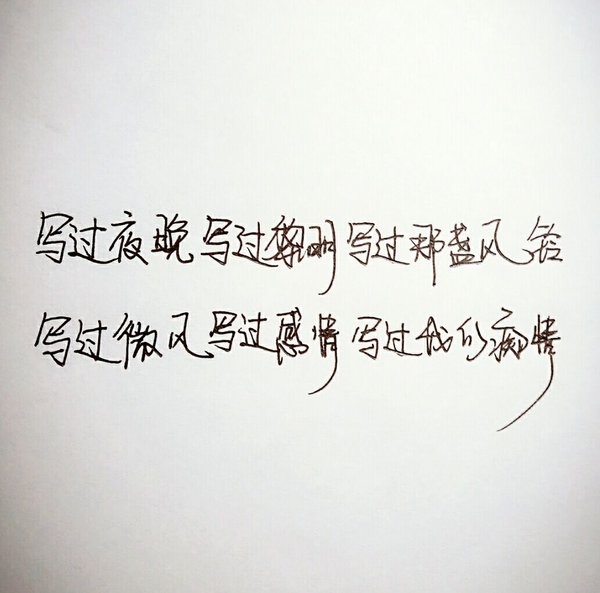 写过夜晚 写过黎明 写过那盏风铃
写过微风 写过感情 写过我的痴情